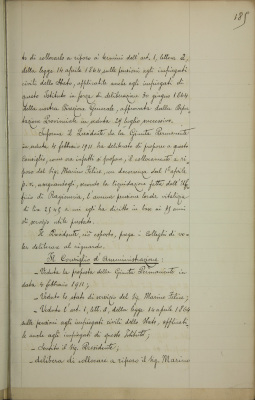 185
to di collocarlo a riposo ai termini dell'art. 1, lettera a,
della legge 14 aprile 1864 sulle pensioni agli impiegati
civili dello Stato, applicabile anche agli impiegati di
questo Istituto in forza di deliberazione 30 giugno 1864
della nostra Direzione Generale, approvata dalla Depu-
tazione Provinciale in data 29 luglio successivo.
Informa il Presidente che la Giunta Permanente
in data 4 febbraio 1911 ha deliberato di proporre a questo
Consiglio, come ora infatti si propone, il collocamento a ri-
poso del sig. Marino Felice, con decorrenza dal 1° aprile
p.v. assegnandogli, secondo la liquidazione fatta dall'Uf-
ficio di Ragioneria, l'annua pensione lorda vitalizia
di L. 2545 cui egli ha diritto in base ai
di servizio utile prestato.
Il Presidente, ciò esposto, prega i Colleghi di vo-
ler deliberare al riguardo.
Il Consiglio d'Amministrazione
- Veduta la proposta della Giunta Permanente in
data 4 febbraio 1911;
- Veduto lo stato di servizio del Sig. Marino Felice;
- Veduto l'art. 1, lett. a, della legge 14 aprile 1864
sulle pensioni agli impiegati civili dello Stato, applicabi-
le anche agli impiegati di questo Istituto;
- Sentito il Sig. Presidente;
- delibera di collocare a riposo il sig. Marino